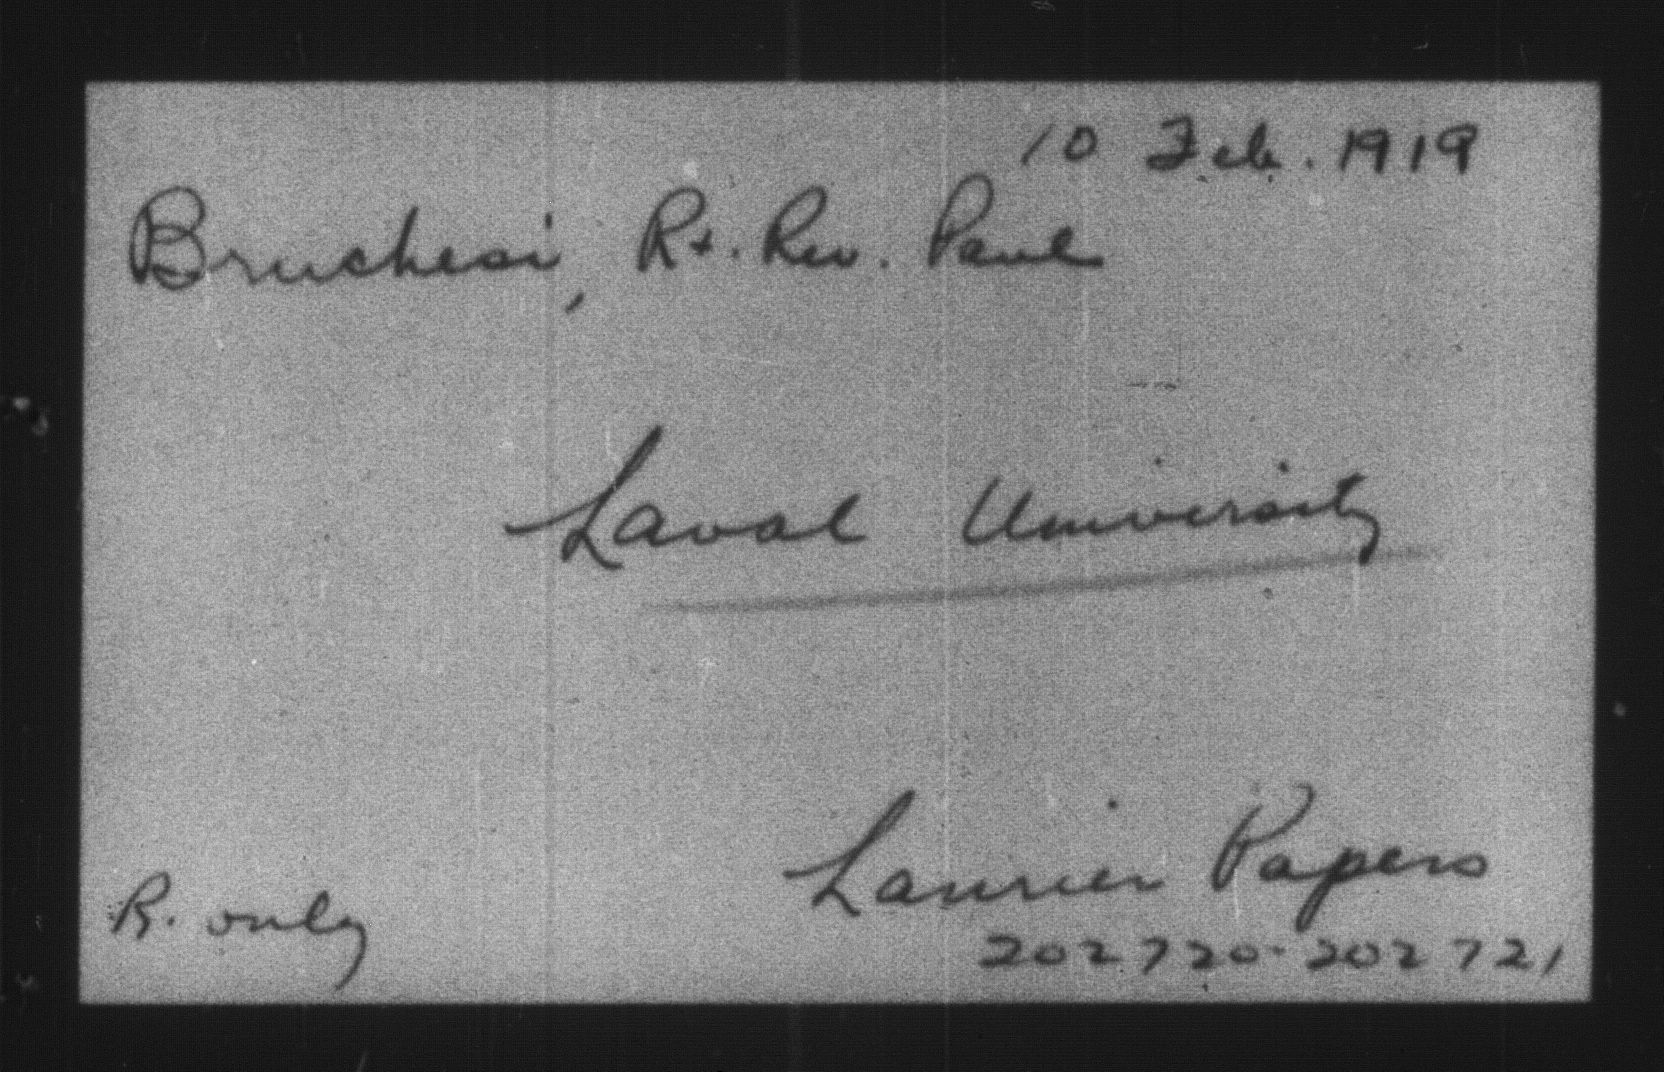 10 Feb. 1919
Bruchesi, Rt. Rev. Paul
Laval University
Laurier Papers
R. only
202720-202721